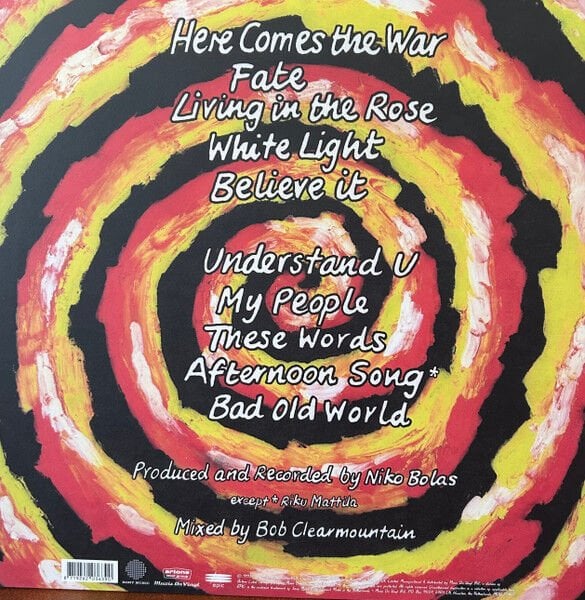 Here Comes the War
Fate
Living in the Rose
White Light
Believe it
Understand U
My People
These Words
Afternoon Song*
Bad Old World
Produced and Recorded by Niko Bolas
except * Riku Mattila
Mixed by Bob Clearmountain
ariona
epic
Music On Vinyl